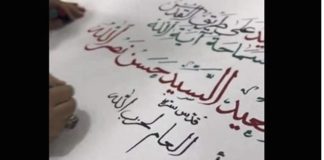 على طريق القدس
سماحة آية الله
السيد حسن نصر الله
قدس سره
العام لحزب الله